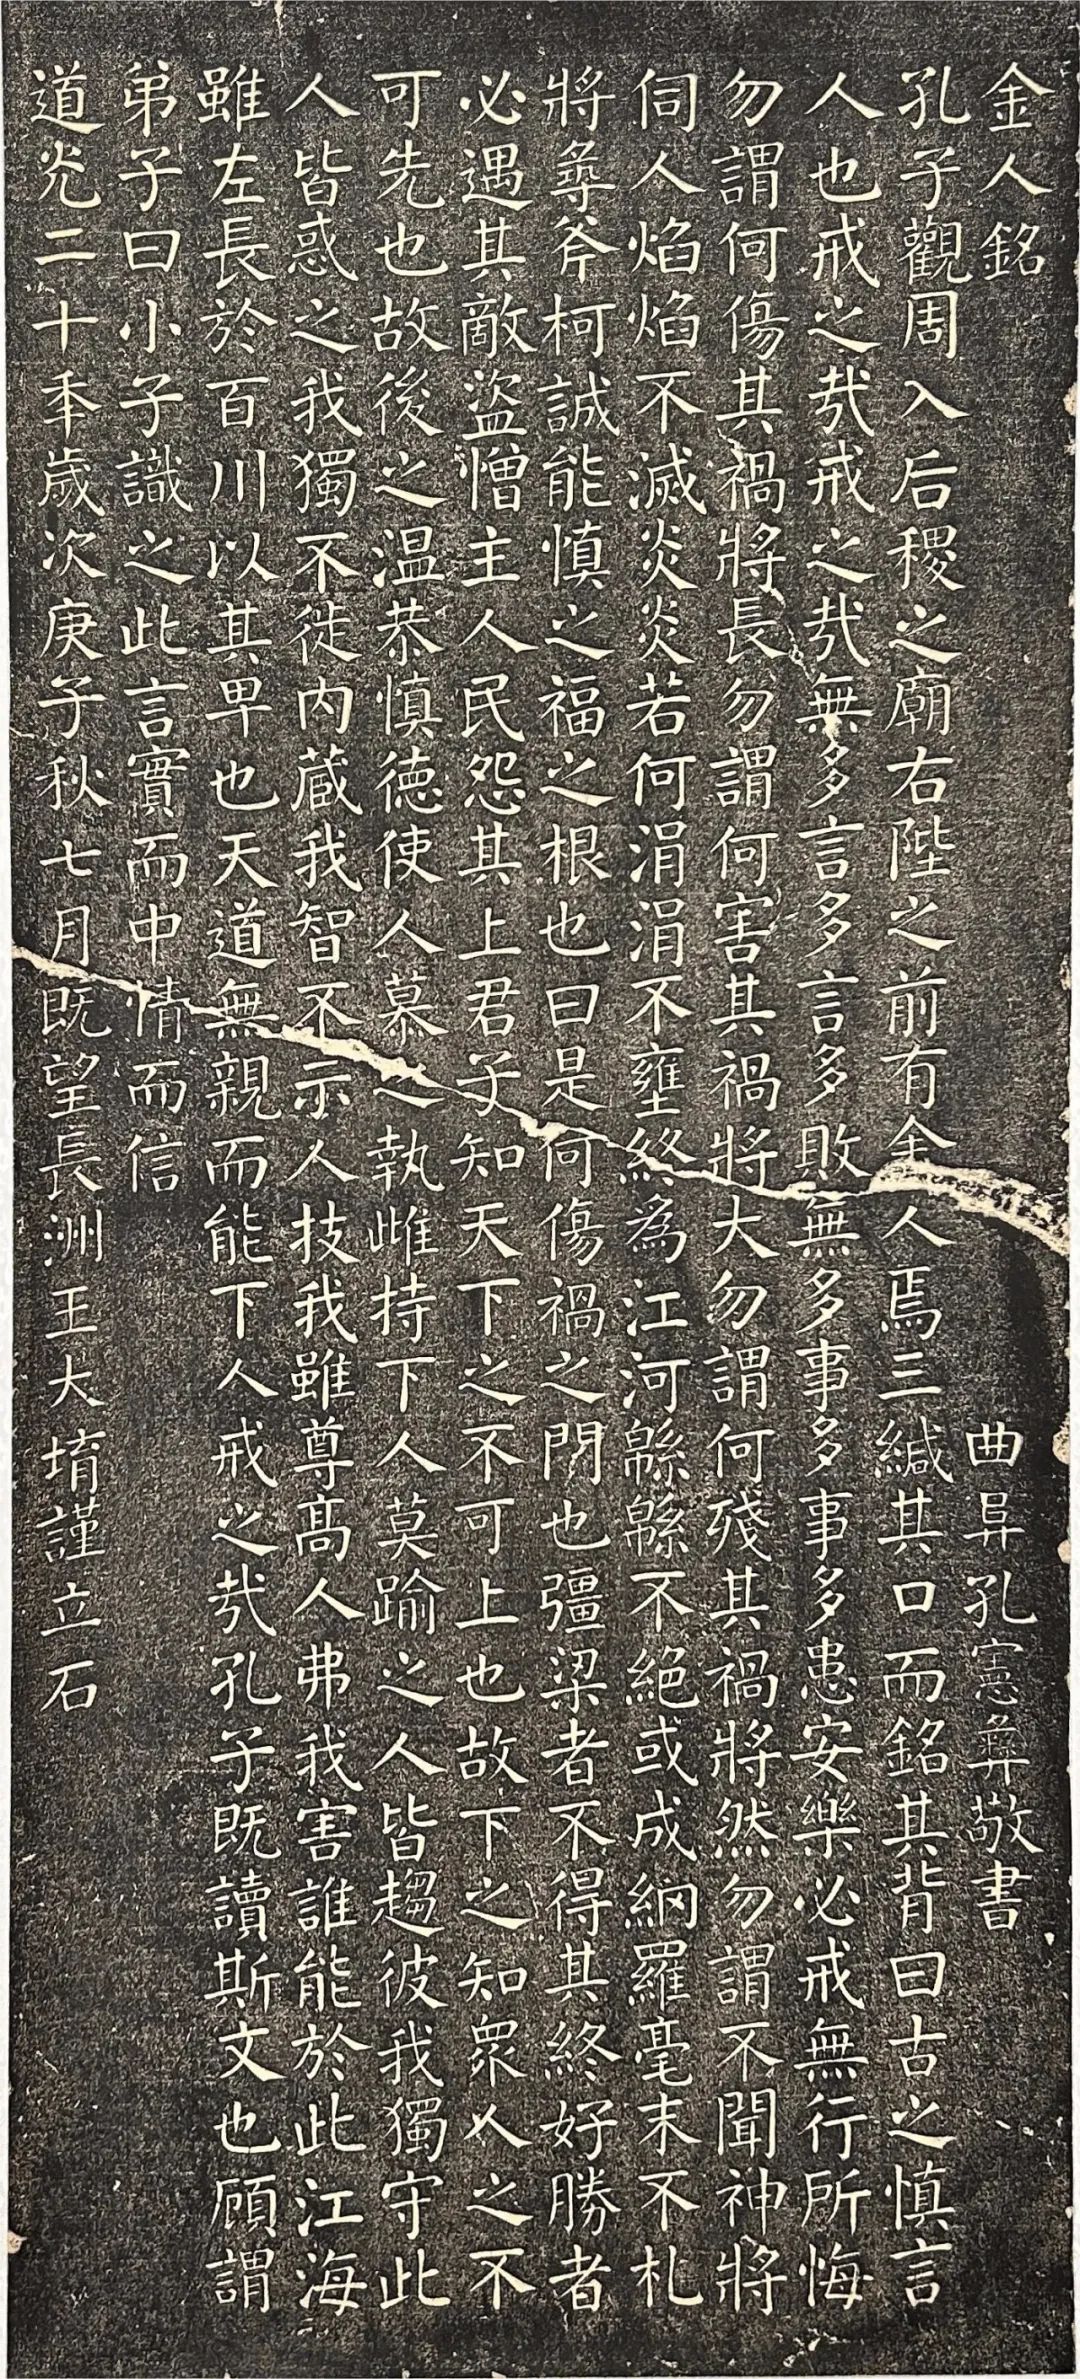 金人銘 曲阜孔憲彝敬書
孔子觀周入后稷之廟右陛之前有金人焉三緘其口而銘其背曰古之慎言
人也戒之哉戒之哉無多言多言多敗無多事多事多患安樂必戒無行所悔
勿謂何傷其禍將長勿謂何害其禍將大勿謂何殘其禍將然勿謂不聞神將
伺人焰焰不滅炎炎若何涓涓不壅終為江河緜緜不絕或成網羅毫末不札
將尋斧柯誠能慎之福之根也曰是何傷禍之門也彊梁者不得其終好勝者
必遇其敵盜憎主人民怨其上君子知天下之不可上也故下之知眾人之不
可先也故後之温恭慎德使人慕之執雌持下人莫踰之人皆趨彼我獨守此
人皆惑之我獨不徙内藏我智不示人技我雖尊高人弗我害誰能於此江海
雖左長於百川以其卑也天道無親而能下人戒之哉孔子既讀斯文也顧謂
弟子曰小子識之此言實而中情而信
道光二十年歲次庚子秋七月既望長洲王大堉謹立石